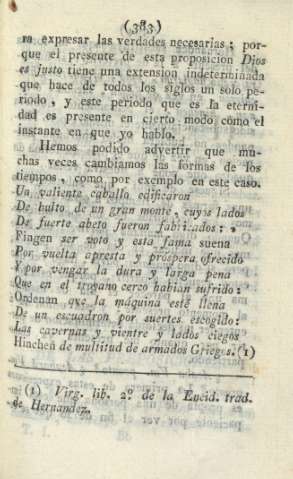 (383)
ra expresar las verdades necesarias; por-
que el presente de esta proposicion Dios
es justo tiene una extension indeterminada
que hace de todos los siglos un solo pe-
riodo, y este periodo que es la eterni-
dad es presente en cierto modo como el
instante en que yo hablo.
Hemos podido advertir que mu-
chas veces cambiamos las formas de los
tiempos, como por exemplo en este caso.
Un valiente caballo edificaron
De bulto de un gran monte, cuyos lados
De fuerte abeto fueron fabricados:
Fingen ser voto y esta fama suena
Por vuelta apresta y próspera ofrecido
Y por vengar la dura y larga pena
Que en el troyano cerco habian sufrido:
Ordenan que la máquina esté llena
De un escuadron por suertes escogido:
Las cavernas y vientre y lados ciegos
Hinchen de multitud de armados Griegos. (1)
(1) Virg. lib. 2º. de la Eneid. trad.
de Hernandez.
T. I. Bb